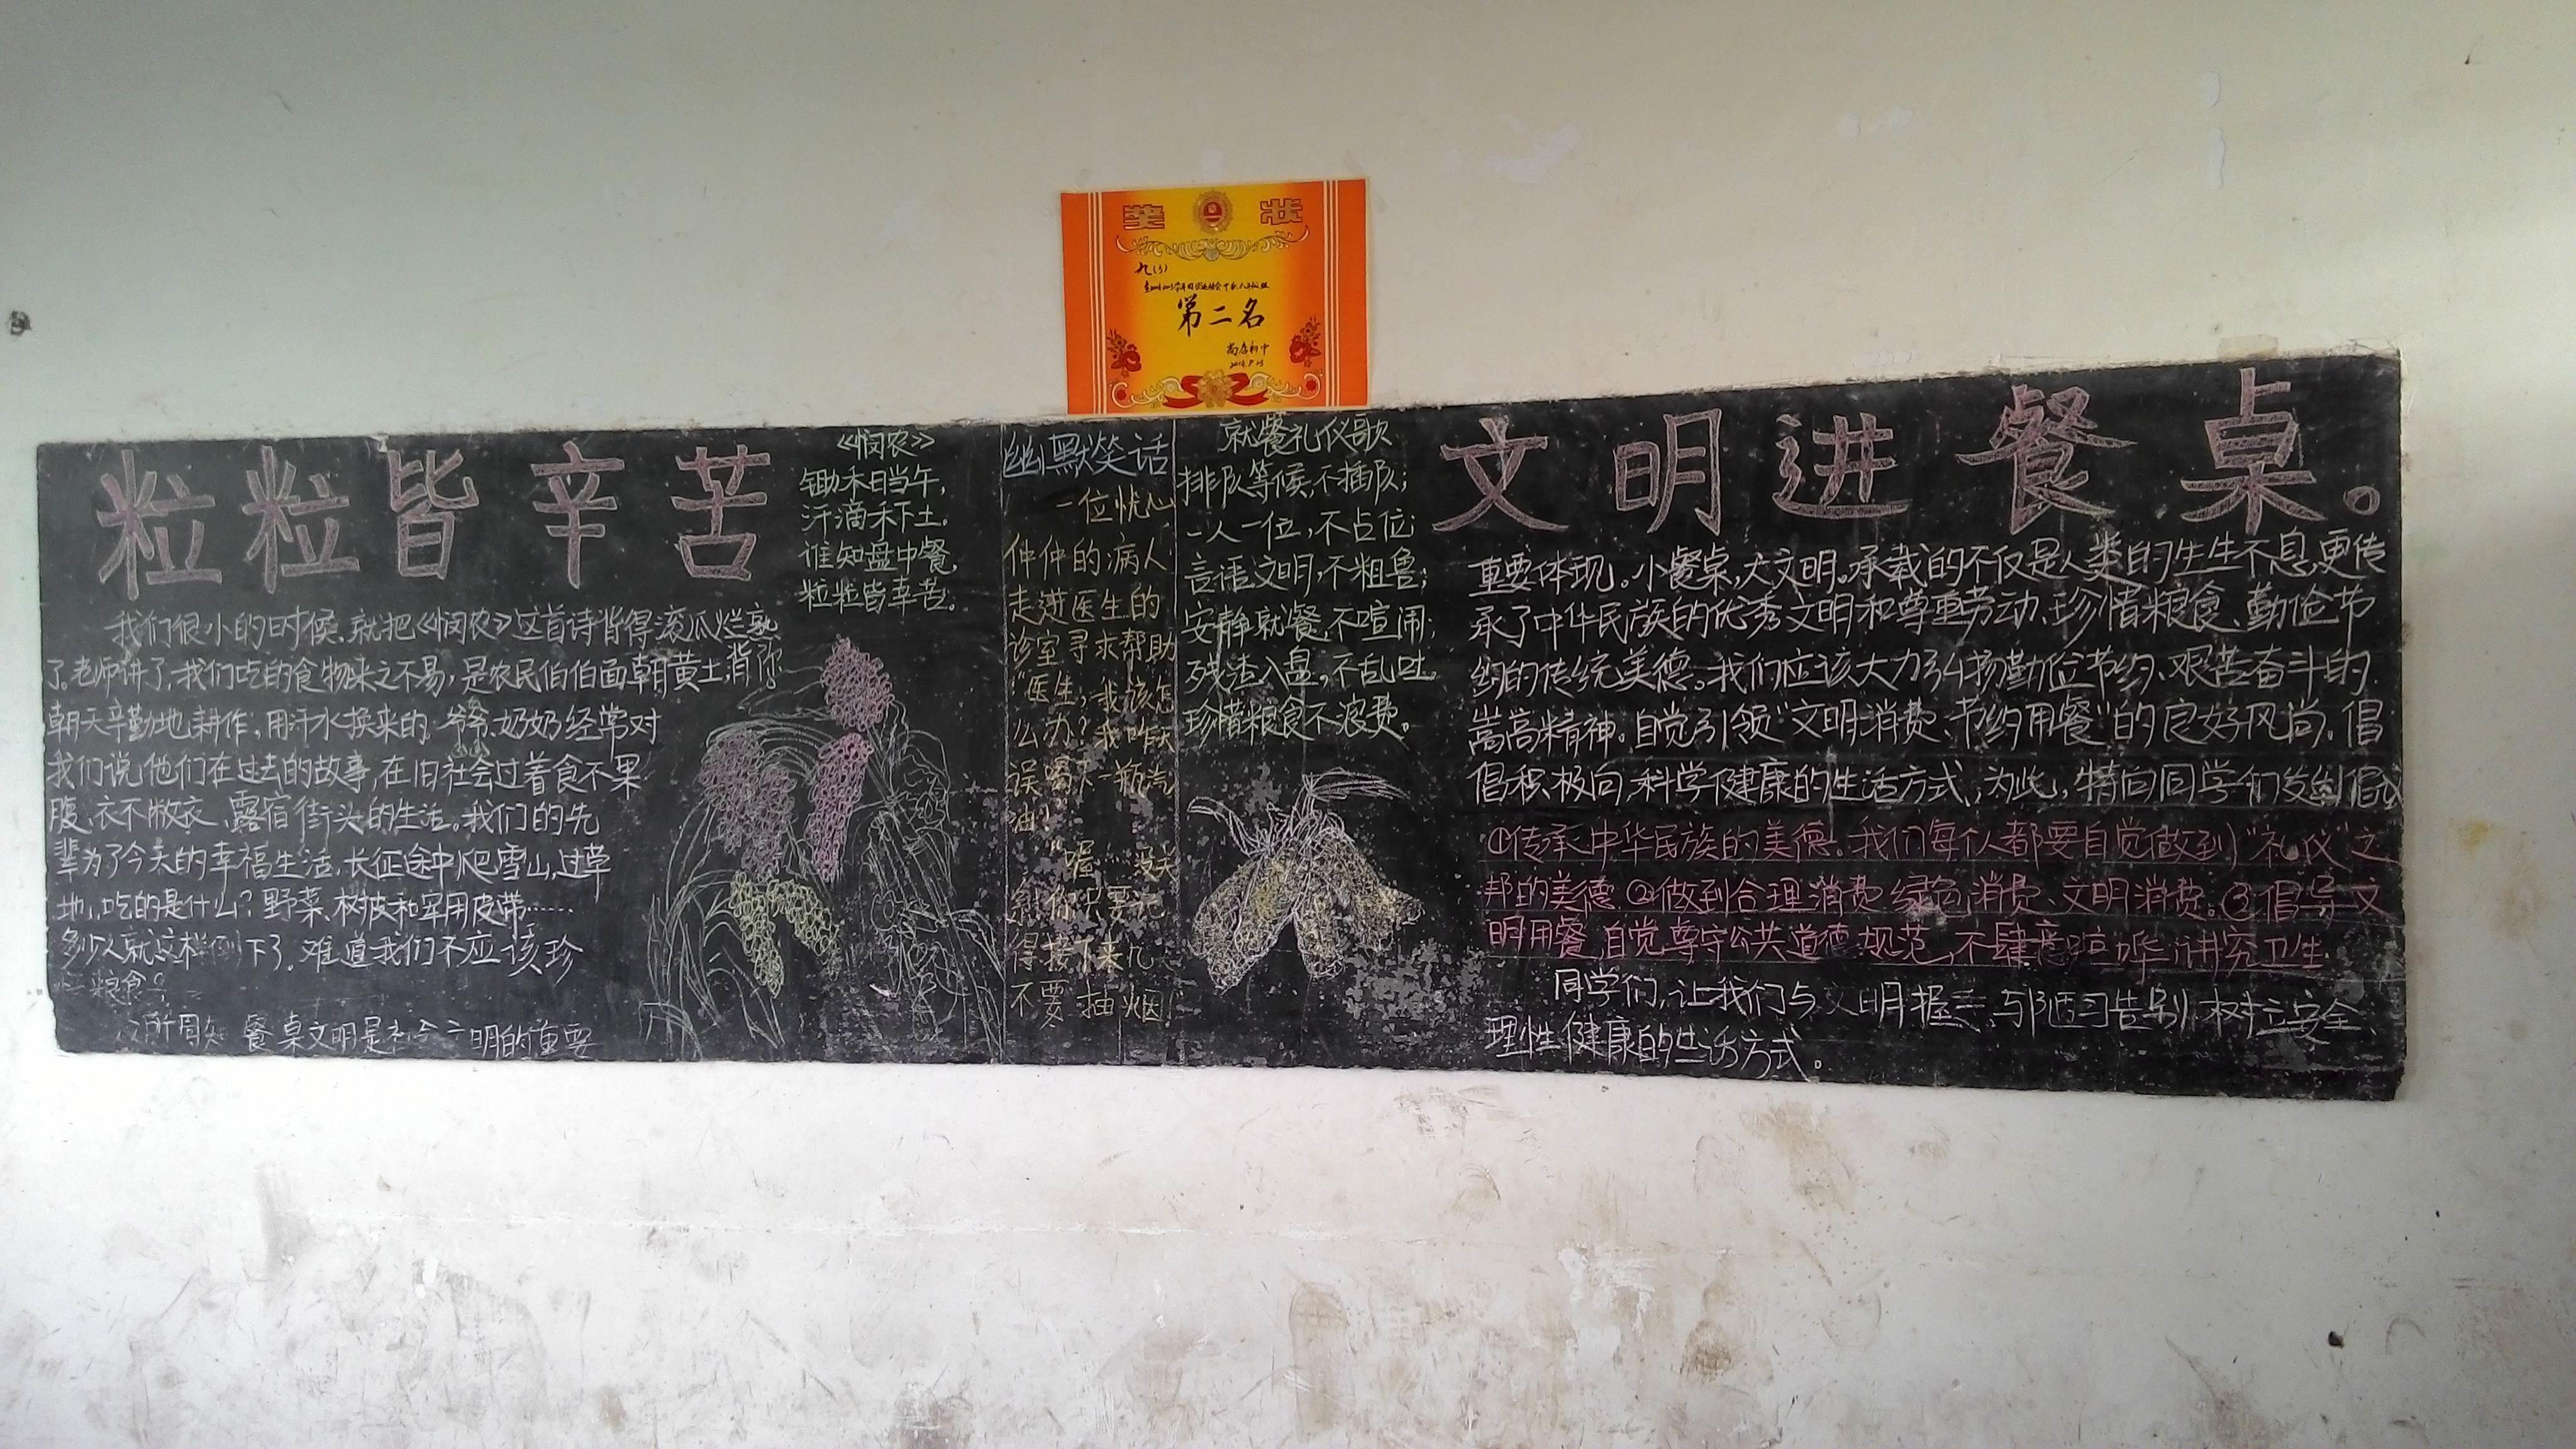 奖状
九(3)
第二名
尚店初中
粒粒皆辛苦
我们很小的时候,就把《悯农》这首诗背得滚瓜烂熟
了。老师讲了,我们吃的食物来之不易,是农民伯伯面朝黄土,背
朝天辛勤地耕作,用汗水换来的。爷爷、奶奶经常对
我们说他们在过去的故事,在旧社会过着食不果
腹、衣不敝衣、露宿街头的生活。我们的先
辈为了今天的幸福生活,长征途中爬雪山,过草
地,吃的是什么?野菜、树皮和军用皮带……
多少人就这样倒下了。难道我们不应该珍
粮食
所周知 餐桌文明是 明的重要
《悯农》
锄禾日当午,
汗滴禾下土。
谁知盘中餐,
粒粒皆辛苦。
幽默笑话
一位忧心
忡忡的病人
走进医生的
诊室寻求帮助
"医生,我该怎
么办?我昨天
误喝下一瓶汽
油!"
"喔 没关
系 你只要记
得接下来几
不要抽烟!
就餐礼仪歌
排队等候,不插队;
一人一位,不占位;
言语文明,不粗鲁;
安静就餐,不喧闹;
残渣入盘,不乱吐。
珍惜粮食不浪费。
文明进餐桌。
重要体现。小餐桌,大文明。承载的不仅是人类的生生不息,更传
承了中华民族的优秀文明和尊重劳动、珍惜粮食、勤俭节
约的传统美德。我们应该大力弘扬勤俭节约、艰苦奋斗的
嵩高精神。自觉引领"文明消费、节约用餐"的良好风尚。倡
倡积极向,科学健康的生活方式,为此,特向同学们发出倡
①传承中华民族的美德。我们每个人都要自觉做到"礼仪"之
邦的美德②做到合理消费 绿色消费、文明消费。③倡导文
明用餐 自觉尊守公共道德规范,不肆意喧哗 讲究卫生
同学们,让我们与文明握手 与陋习告别 树立安全
理性健康的生活方式。